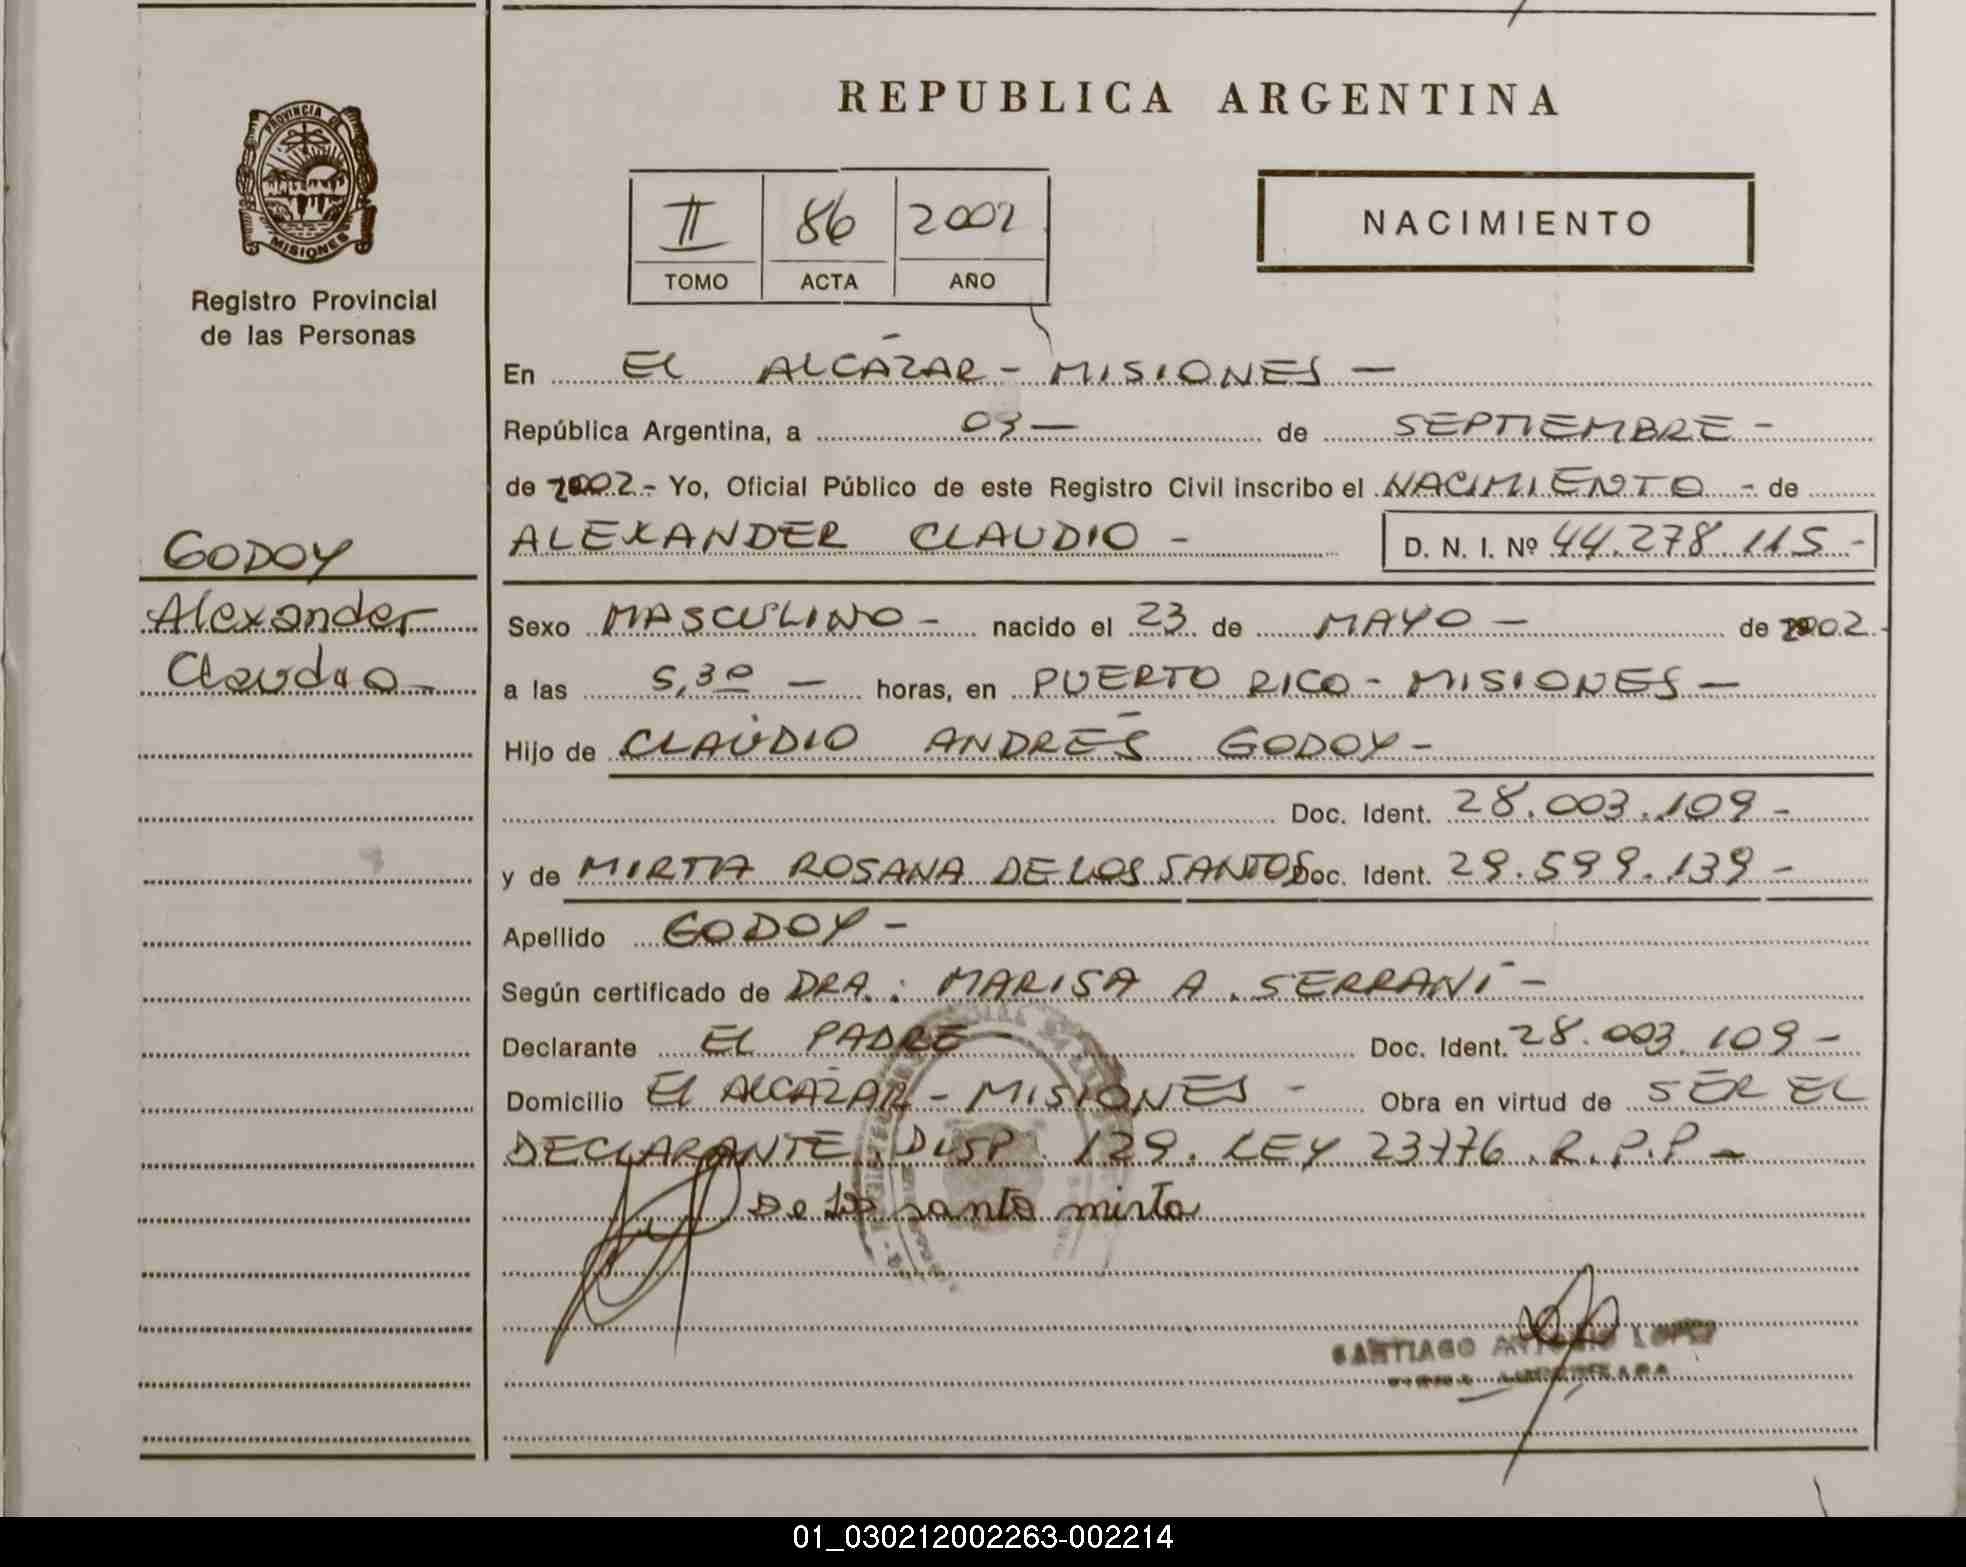 REPUBLICA ARGENTINA
PROVINCIA DE
MISIONES
Registro Provincial
de las Personas
II 86 2002
TOMO ACTA AÑO
NACIMIENTO
En EL ALCÁZAR - MISIONES -
República Argentina, a 03 - de SEPTIEMBRE -
de 2002.- Yo, Oficial Público de este Registro Civil inscribo el NACIMIENTO - de
ALEXANDER CLAUDIO - D. N. I. Nº 44.278.115 -
GODOY
Alexander
Claudio -
Sexo MASCULINO - nacido el 23 de MAYO - de 2002.-
a las 5,30 - horas, en PUERTO RICO - MISIONES -
Hijo de CLAUDIO ANDRÉS GODOY -
Doc. Ident. 28.003.109 -
y de MIRTA ROSANA DE LOS SANTOS Doc. Ident. 29.599.139 -
Apellido GODOY -
Según certificado de DRA.: MARISA A. SERRANI -
Declarante EL PADRE - Doc. Ident. 28.003.109 -
Domicilio El ALCÁZAR - MISIONES - Obra en virtud de SER EL
DECLARANTE. DISP. 129. LEY 23776. R.P.P -
De los santos mirta
SANTIAGO ANTONIO LOPEZ
01_030212002263-002214